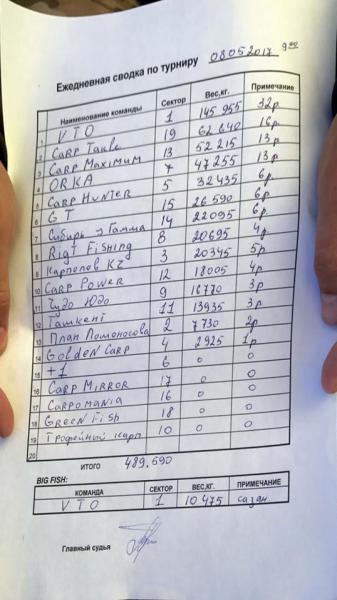 Ежедневная сводка по турниру 08052017 9 00
Наименование команды Сектор Вес,кг. Примечание
1 VTO 1 145 955 32р
2 Carp Takle 19 62 640 16р
3 Carp Maximum 13 52 215 13р
4 ORKA 7 47 255 13р
5 Carp Hunter 5 32 435 6р
6 GT 15 26 590 6р
7 Сибирь Гамма 14 22095 6р
8 Rigt Fishing 8 20695 4р
9 Карполов KZ 3 20345 5р
10 Carp Power 12 18005 4р
11 Чудо Юдо 9 16770 3р
12 Tamкent 11 13935 3р
13 План Ломоносова 2 7730 2р
14 Golden Carp 4 2925 1р
15 +1 6 0 0
16 Carp Mirror 17 0 0
17 Carpomania 16 0 0
18 Green Fish 18 0 0
19 Трофейный карп 10 0 0
20
итого 489.590
BIG FISH:
КОМАНДА СЕКТОР ВЕС,КГ. ПРИМЕЧАНИЕ
VTO 1 10 475 сазан.
Главный судья